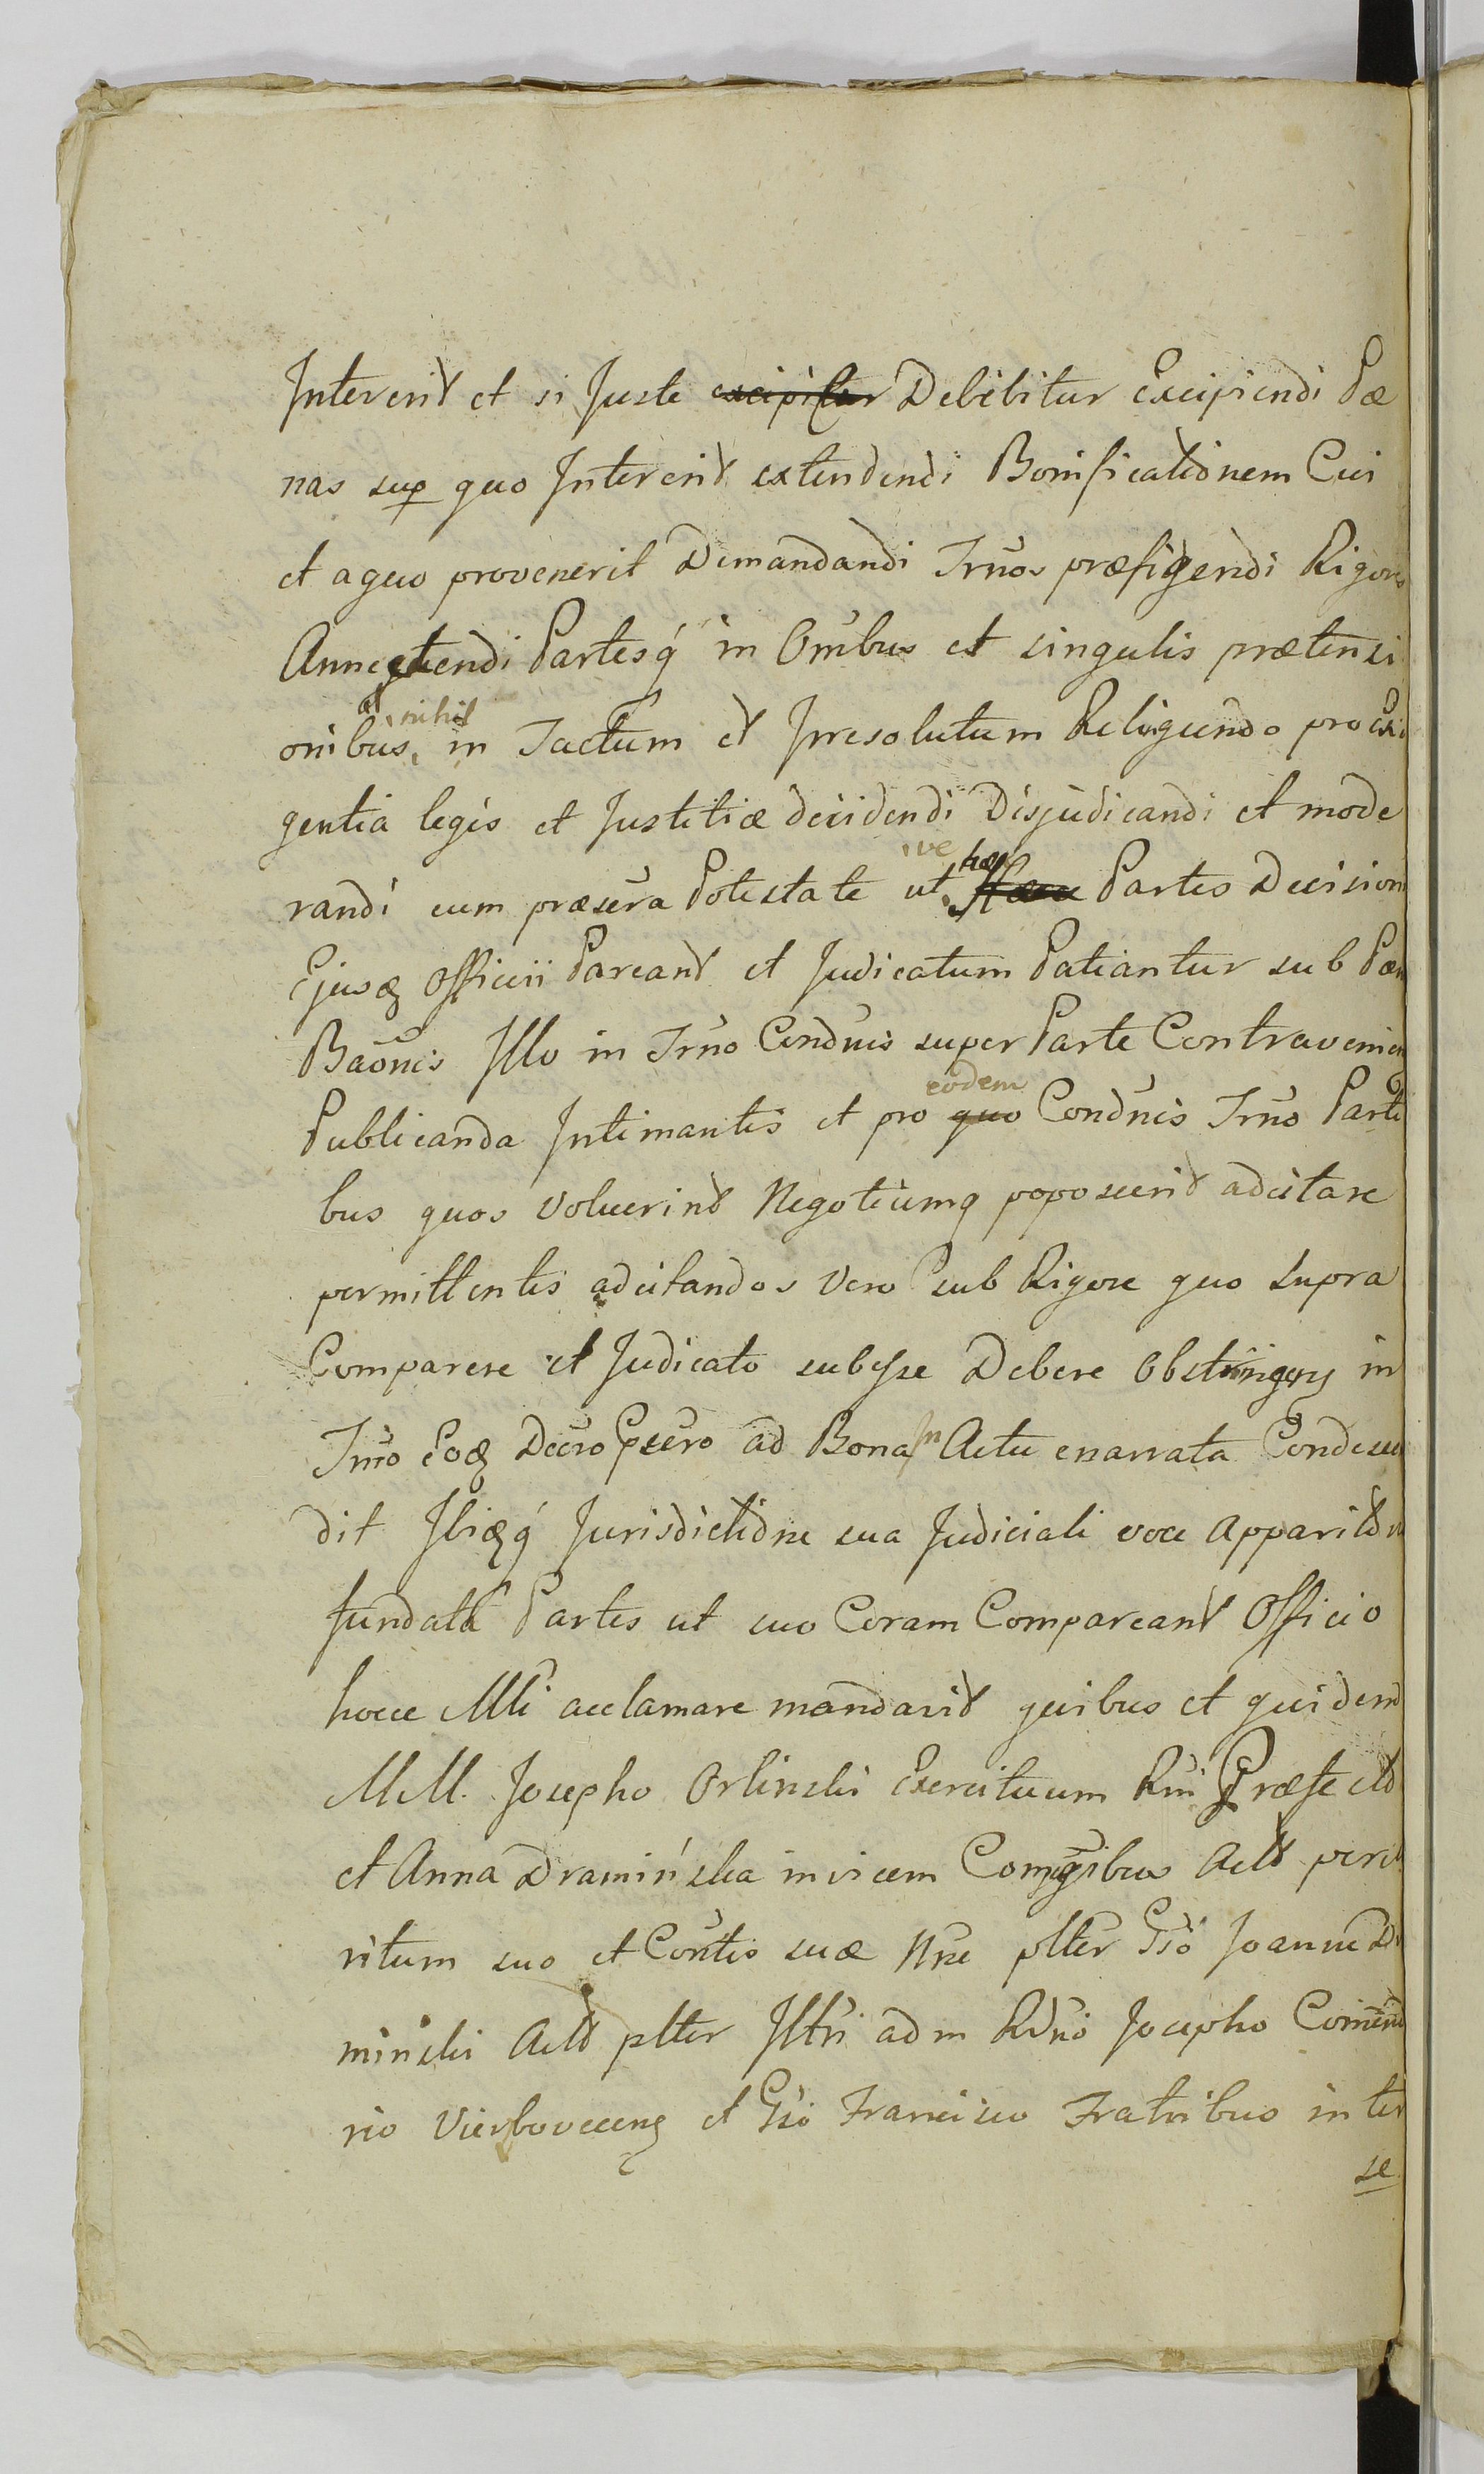 Intererit et si Juste excipitur Debebitur Excipiendi Pæ
nas sup quo Intererit extendendi Bonificationem Cui
et a quo provenerit Demandandi Trnos præfigendi Rigores
Annectendi Partesq in Omibus et singulis prætensi
onibus nihil in Tactum et Irresolutum Relinquendo pro Exi
gentia legis et Justitiæ decidendi Disjudicandi et mode
randi cum præsera Potestate ut hæ Partes Decisioni
Ejusq Officii Pareant et Judicatum Patiantur sub Pæn
Baonis Illo in Trno Condnis super Parte Contravenien
Publicanda Intimantis et pro quo eodem Condnis Trno Parti
bus quos voluerint Negotiumq poposcerit adcitare
permittentis adcitandos vero sub Rigore quo supra
Comparere et Judicato subesse Debere Obstringens in
Trno Eoq Decro Psero ad Bona in Actu enarrata Condescen
dit Ibiq Jurisdictione sua Judiciali voce Apparitor
fundata Partes ut suo Coram Compareant Officio
hocce Mli acclamare mandavit quibus et quidem
M.M. Josepho Orlinski Exercituum Rni Præfecto
et Anna Dramińska invicem Conjugibus Acto per
ritum suo et Contis suæ Nne plter Gso Joanne Dr
minski Acto plter Illtri adm Rdno Josepho Commend
rio Vierbovecens et Gso Francisco Fratribus inter
se